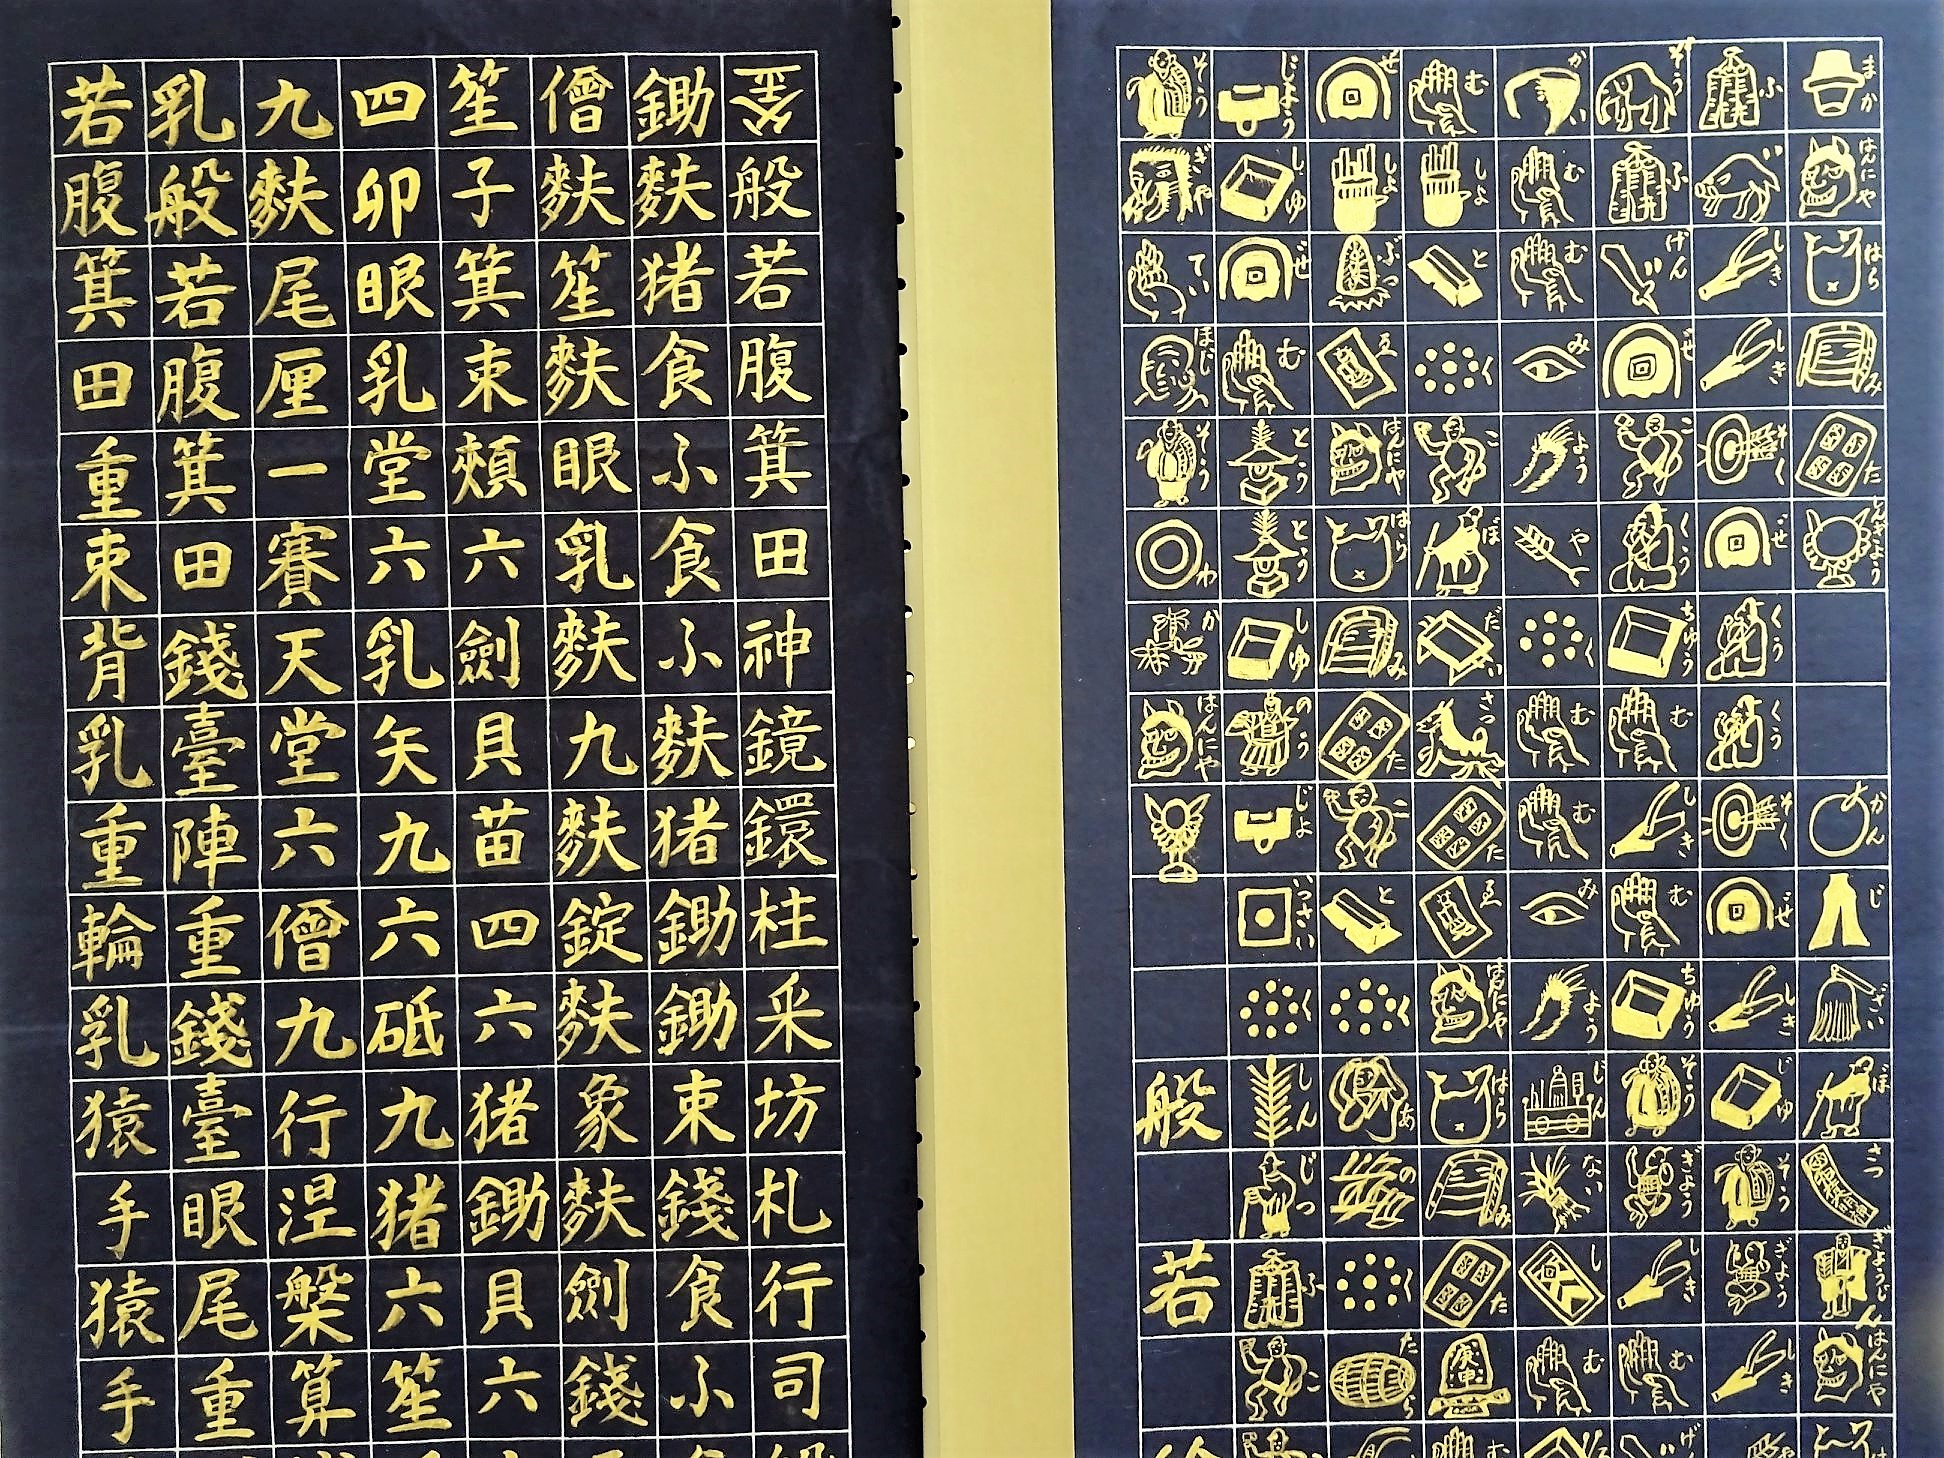 まかはんにやはらみたしんぎようかんじざいぼさつぎようじんはんにや
ふしきしきそくぜくうくうそくぜしきじゆそうぎようしき
ぞうふげんぜこくうちゆうむしきむちゆうそうぎようしきむ
かいむむみようやくむむみようじんないしむ
むしよとくこぼだいさつたゑはんにやはらみた
ぜしよぶつゑはんにやはらみたことくあのくたら
じようしゆぜむとうとうしゆのうじよいつさいくしんじつふこ
そうぎやていぼじそうわかはんにや
般若
釜般若腹箕田神鏡鐶柱采坊札行司
鋤麩猪食ふ食ふ麩猪鋤鋤束錢食ふ
僧麩笙麩眼乳麩九麩錠麩象麩劍錢
笙子箕束頬六劍貝苗四六猪鋤貝六
四卯眼乳堂六乳矢九六砥九猪六笙
九麩尾厘一賽天堂六僧九行涅槃算
乳般若腹箕田錢臺陣重錢臺眼尾重
若腹箕田重束背乳重輪乳猿手猿手